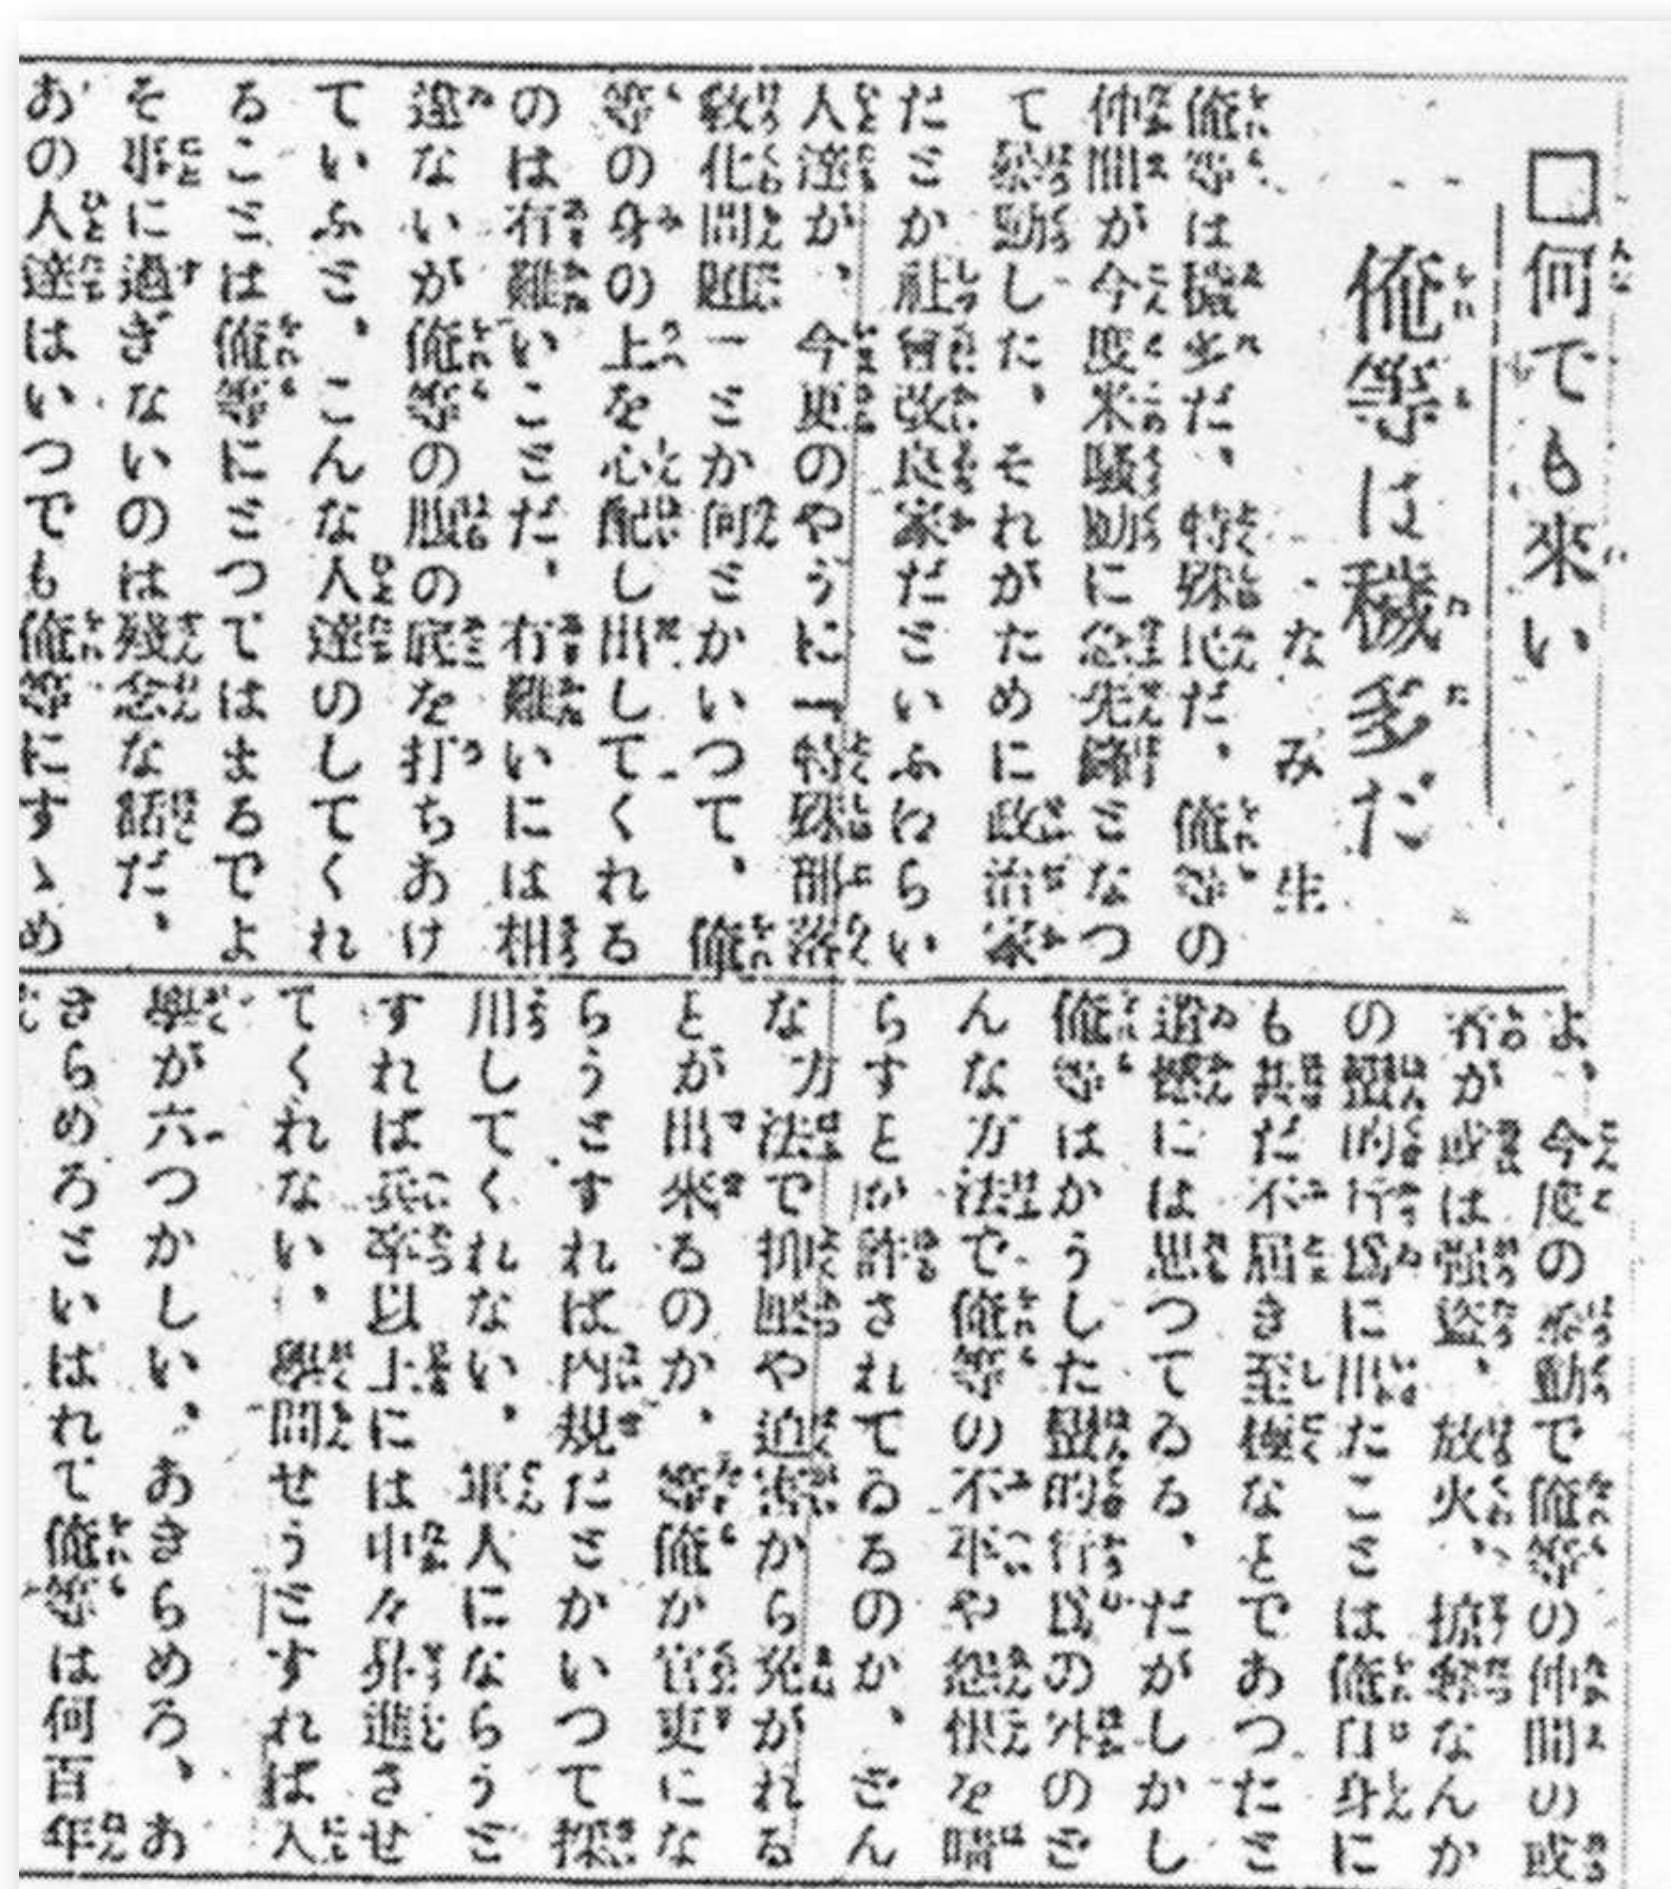 □何でも來い
俺等は穢多だ
なみ生
俺等は穢多だ、特殊民だ、俺等の
仲間が今度米騒動に急先鋒ミなつ
て暴動した、それがために政治家
だミか社會改良家だミいふねらい
人達が、今更のやうに「特殊部落
教化問題一ミか何ミかいつて、俺
等の身の上を心配し出してくれる
のは有難いこミだ、有難いには相
違ないが俺等の腹の底を打ちあけ
ていふミ、こんな人達のしてくれ
るこミは俺等にミつてはまるでよ
そ事に過ぎないのは殘念な話だ、
あの人達はいつでも俺等にすゝめ
よ、今度の暴動で俺等の仲間の或
者が或は强盗、放火、掠奪なんか
の蠻的行爲に出たこミは俺自身に
も共だ不屆き至極なとであつたミ
遺憾には思つてゐる、だがしかし
俺等はかうした蠻的行爲の外のど
んな方法で俺等の不平や怨恨を晴
らすとか許されてゐるのか、どん
な方法で抑壓や迫害から免がれる
とが出來るのか、等俺か官吏にな
らうミすれば内規だミかいつて採
用してくれない、軍人にならうミ
すれば兵卒以上には中々昇進させ
てくれない、學問せうミすれば入
學が六つかしい、あきらめろ、あ
きらめろミいはれて俺等は何百年